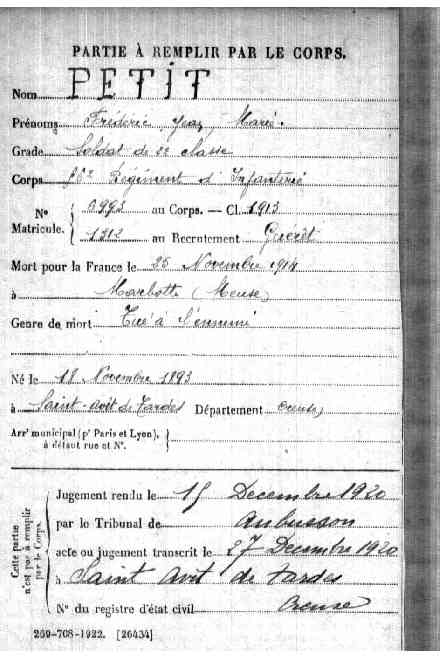 PARTIE À REMPLIR PAR LE CORPS.
Nom PETIT
Prénoms Fréderic Jean Marie.
Grade Soldat de 2e classe
Corps Régiment d'Infanterie
N° Matricule. { 3993 au Corps. — Cl. 1913
1312 au Recrutement Guéret
Mort pour la France le 25 Novembre 1914
à Marbotte (Meuse)
Genre de mort Tué à l'ennemi
Né le 18 Novembre 1893
à Saint-avit de Tardes Département Creuse
Arr' municipal (p' Paris et Lyon),
à défaut rue et N°.
Cette partie n'est pas à remplir par le Corps.
Jugement rendu le 15 Decembre 1920
par le Tribunal de Aubusson
acte ou jugement transcrit le 27 Decembre 1920
à Saint avit de tardes
N° du registre d'état civil Creuse
269-708-1922. [26434]